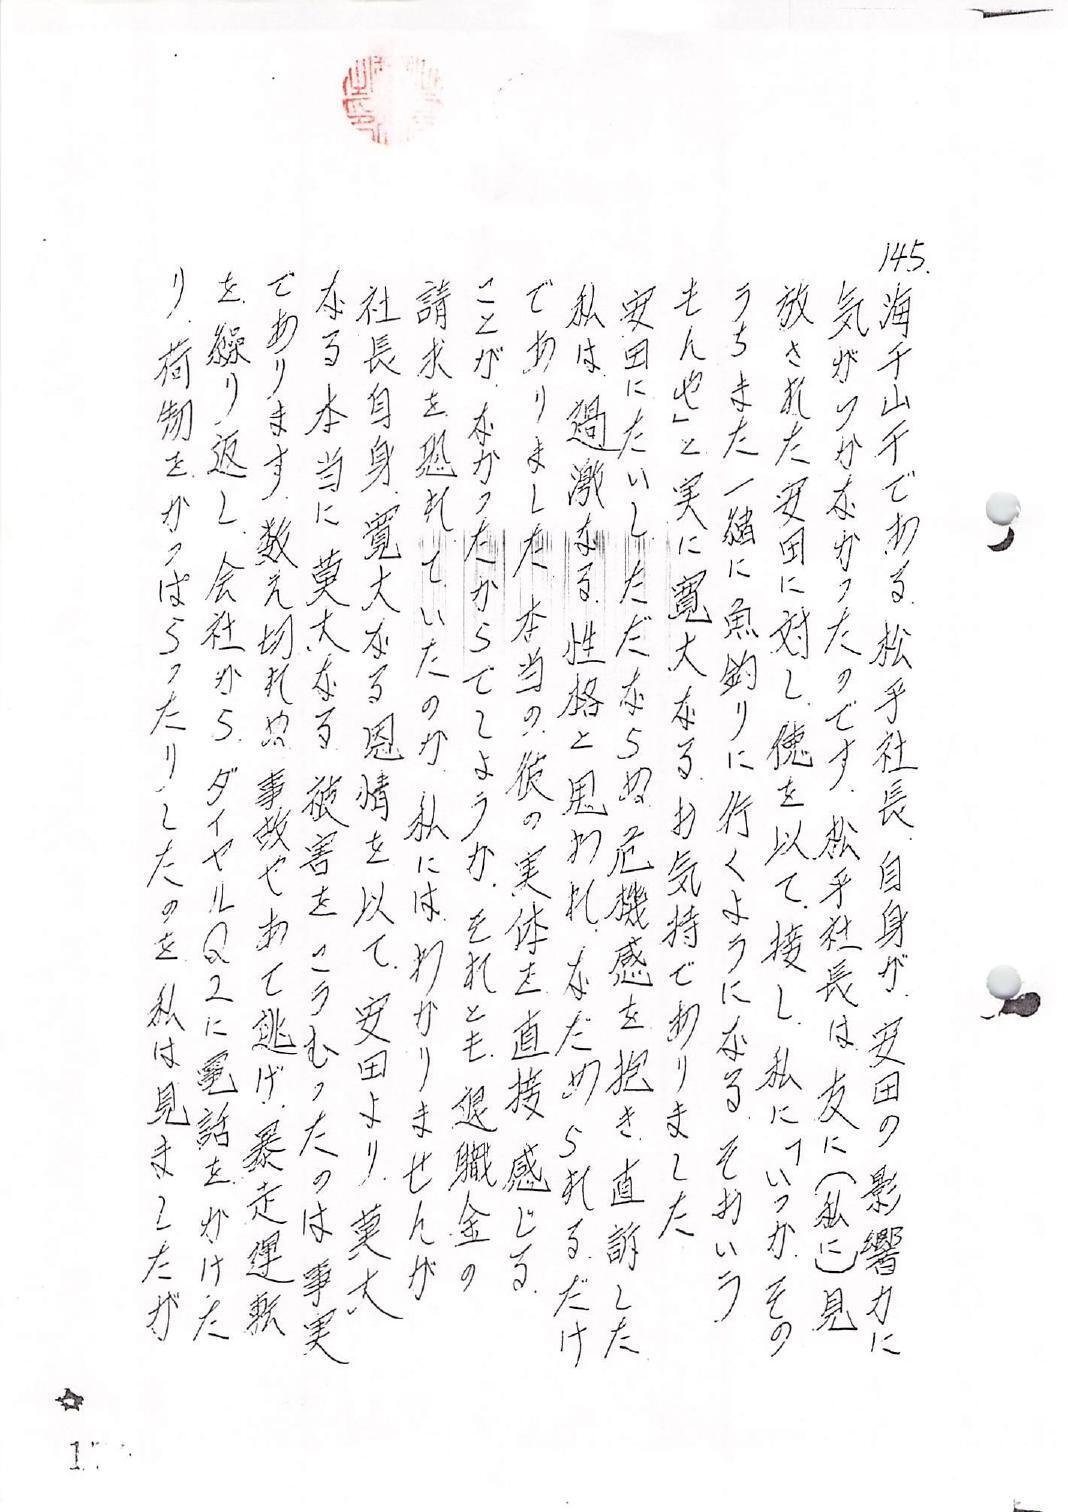 145.
海千山千である、松乎社長、自身が、安田の影響力に
気がつかなかったのです、松乎社長は友に(私に)見
放された安田に対し、徳を以て、接し、私に「いつか、その
うちまた一緒に魚釣りに行くようになる、そおいう
もんや」と実に寛大なる、お気持でありました
安田にたいし、ただならぬ危機感を抱き、直訴した
私は、過激なる、性格と思われ、なだめられる、だけ
でありました、本当の、彼の実体を直接感じる、
ことが、なかったからでしようか、それとも、退職金の
請求を恐れていたのか、私には、わかりませんが
社長自身、寛大なる恩情を以て、安田より、莫大
なる本当に莫大なる、被害を、こうむったのは事実
であります、数え切れぬ、事故やあて逃げ、暴走運転
を、繰り返し、会社から、ダイヤルQ2に電話を、かけた
り、荷物を、かっぱらったりしたのを、私は見ましたが
1